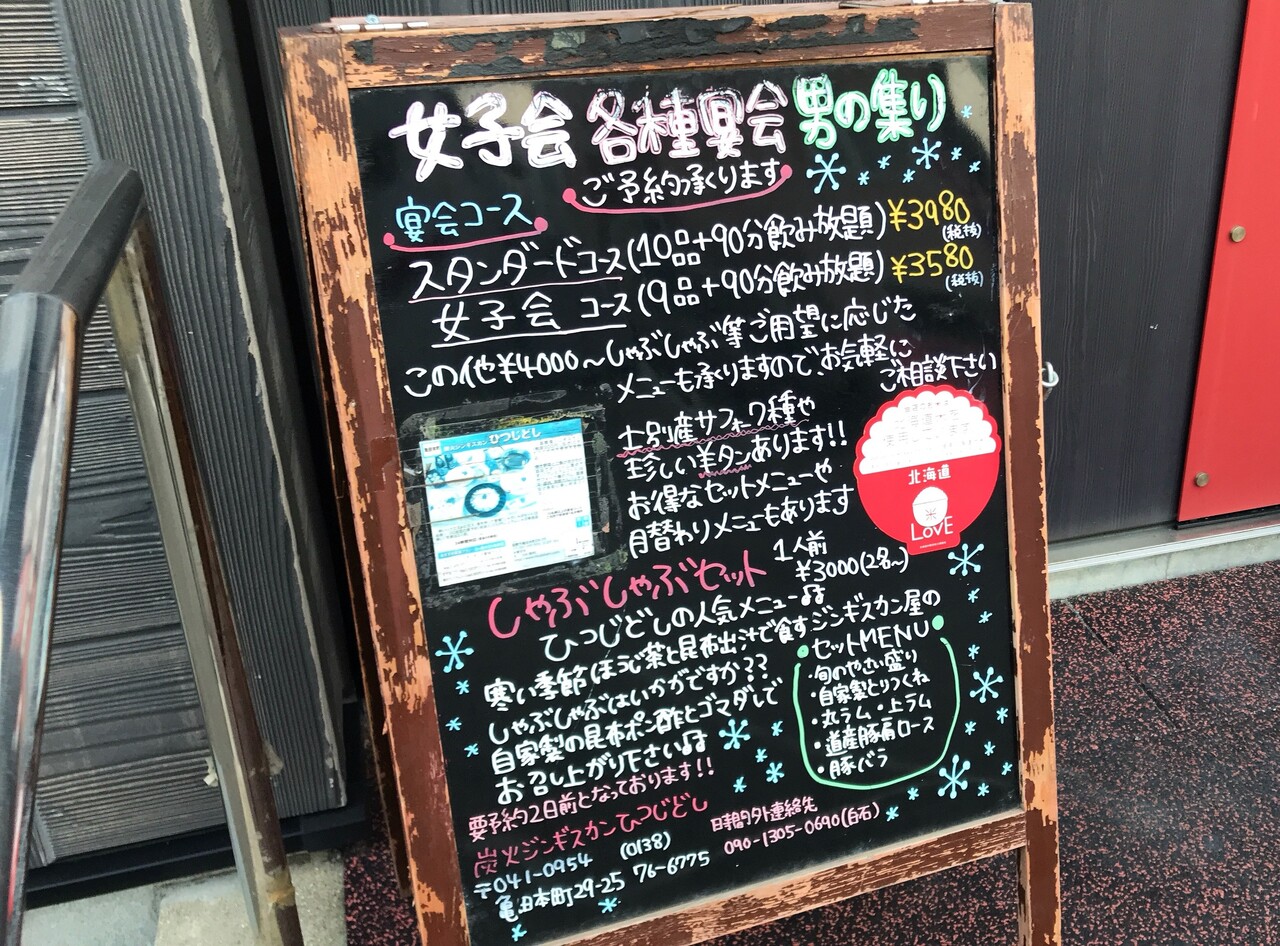 女子会 各種宴会 男の集り
ご予約承ります
宴会コース
スタンダードコース(10品+90分飲み放題)¥3980
(税抜)
女子会 コース(9品+90分飲み放題)¥3580
(税抜)
この他¥4000~しゃぶしゃぶ等ご用望に応じた
メニューも承りますので、お気軽に
ご相談下さい
ひつじどし
士別産サフォーク種や
珍しい羊タンあります!!
お得なセットメニューや
月替わりメニューもあります
北海道
米
LOVE
しゃぶしゃぶセット
1人前
¥3000(2名~)
ひつじどしの人気メニュー
寒い季節ほうじ茶と昆布出汁で食すジンギスカン屋の
しゃぶしゃぶはいかがですか??
自家製の昆布ポン酢とゴマダレで
お召し上がり下さい
要予約2日前となっております!!
セットMENU
・旬のやさい盛り
・自家製とりつくね
・丸ラム・上ラム
・道産豚肩ロース
・豚バラ
炭火ジンギスカンひつじどし
〒041-0954
亀田本町29-25
(0138)
76-6775
時間外連絡先
090-1305-0690(白石)